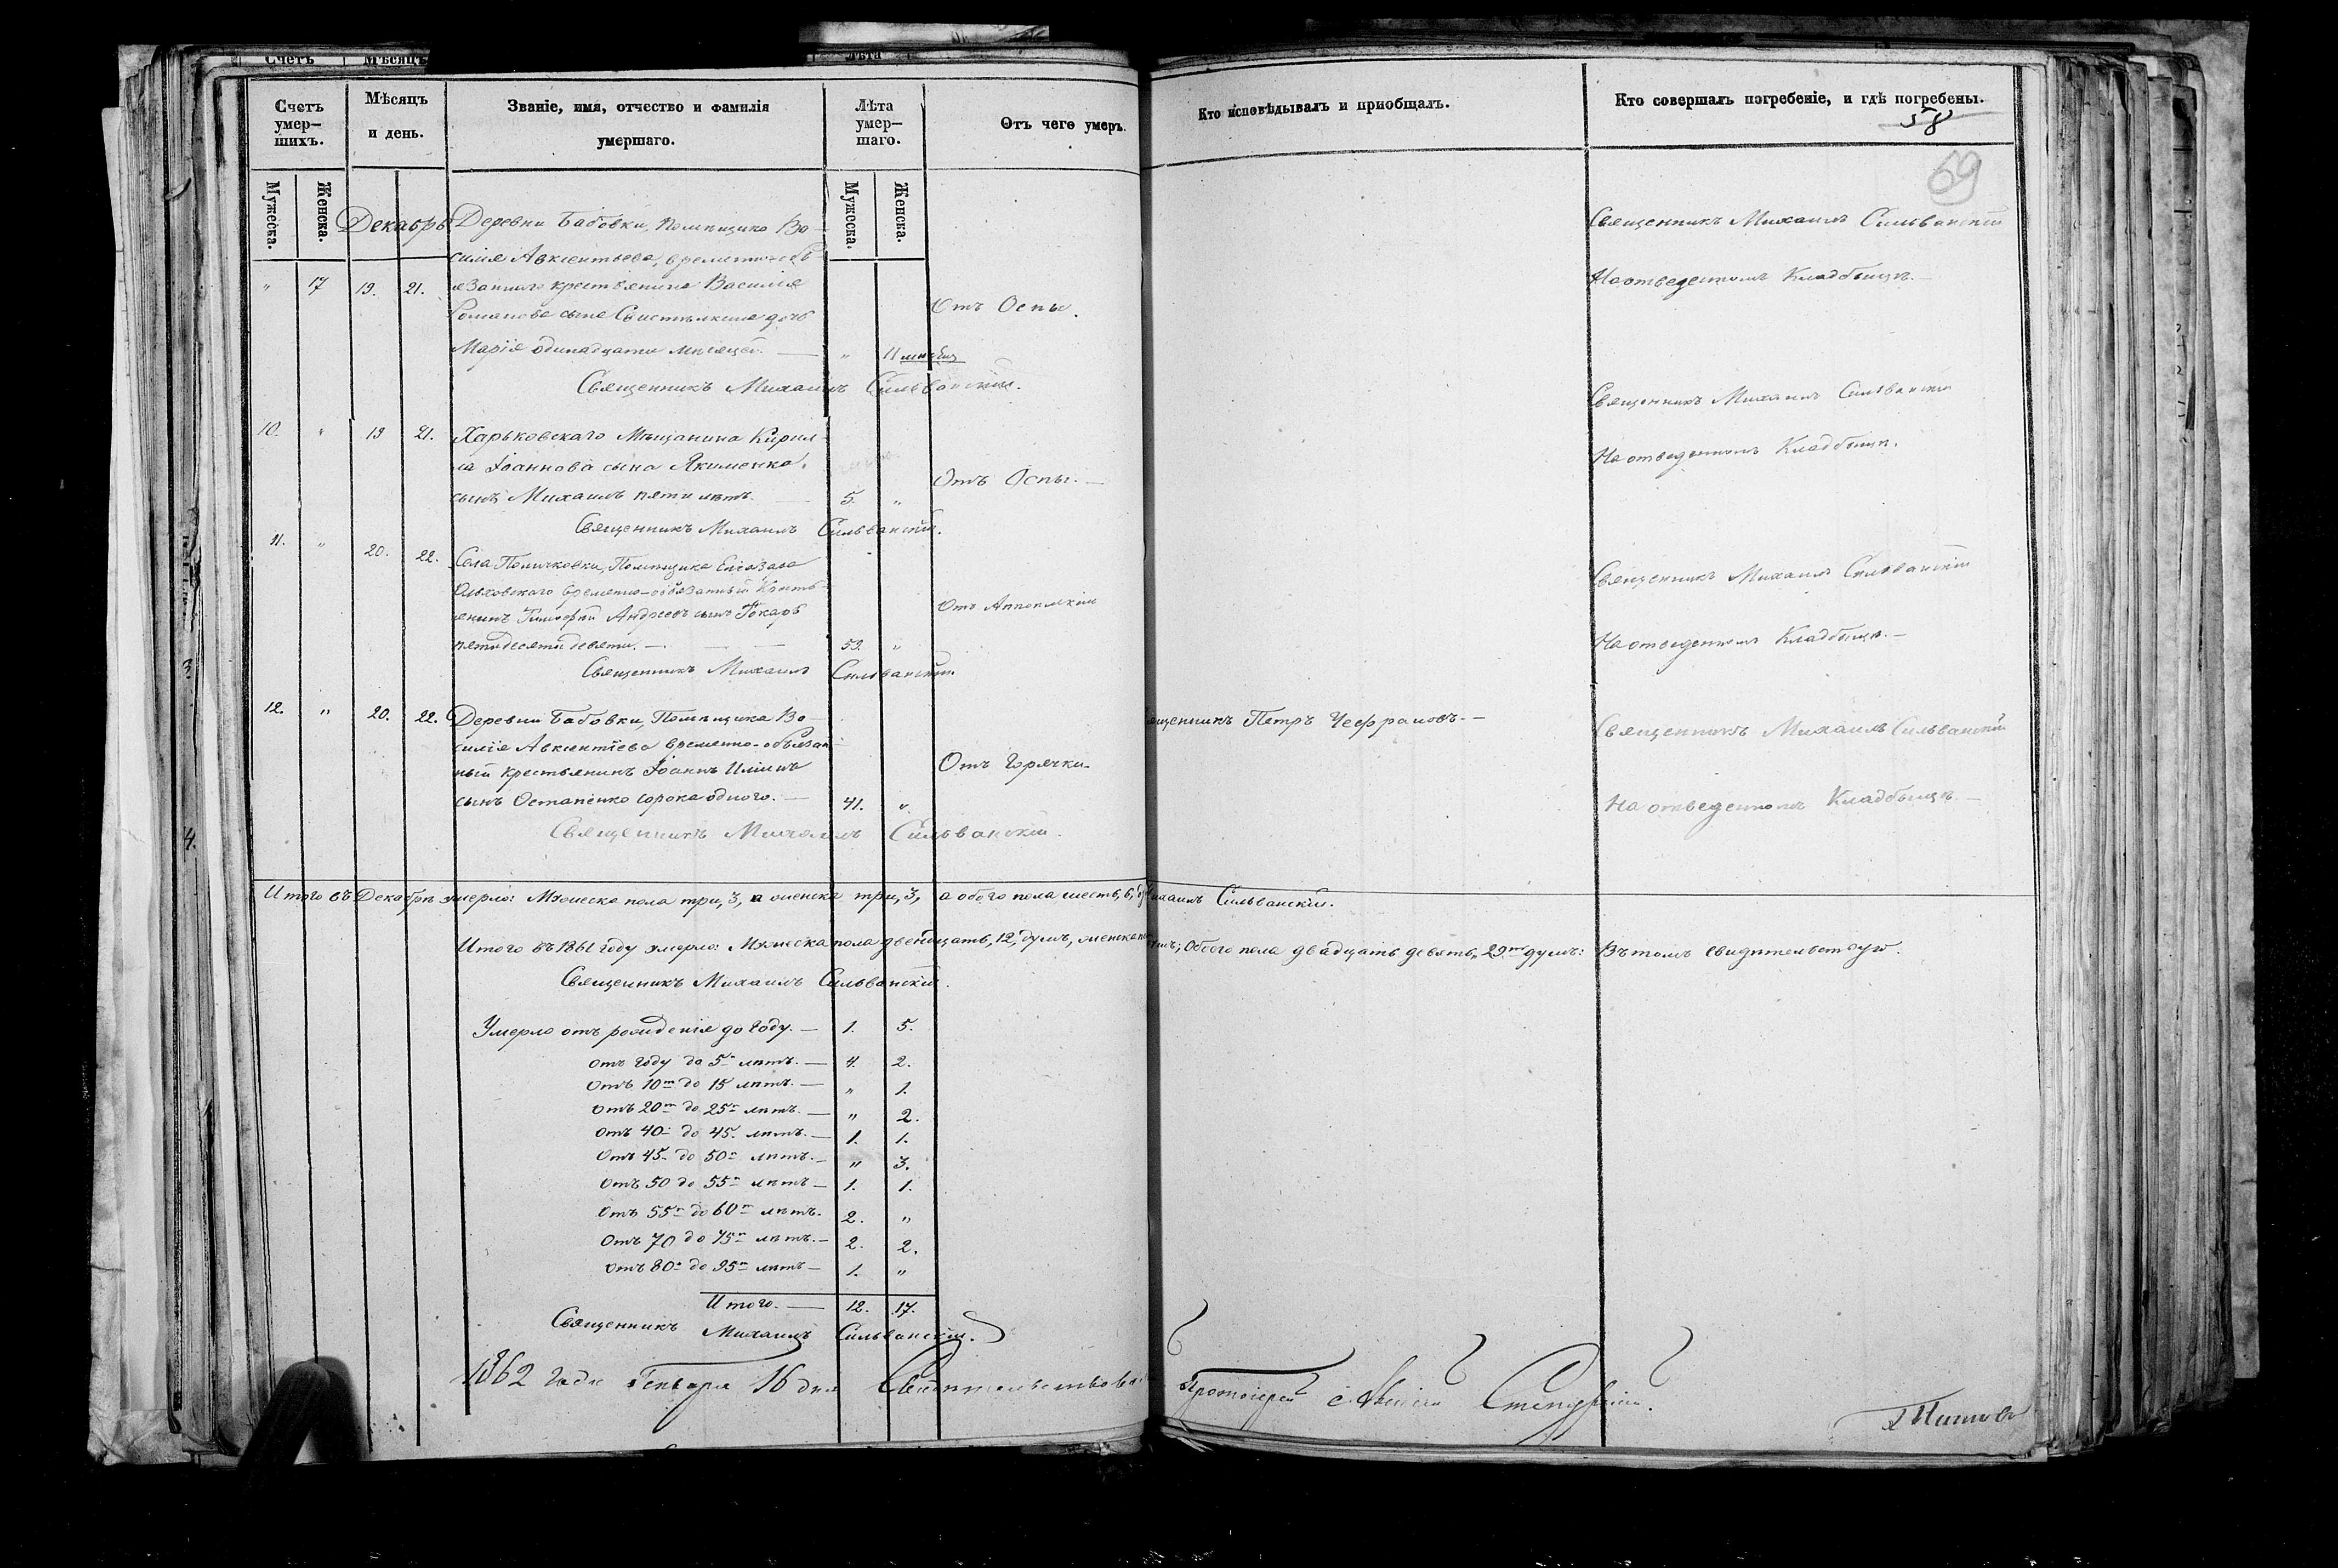 Счетъ умер— шихъ.
Мѣсяцъ и день.
Званіе, имя, отчество и фамилія умершаго.
Лѣта умер— шаго.
Отъ чего умеръ.
Кто исповѣдывалъ и пріобщалъ.
Кто совершалъ погребеніе, и гдѣ погребены.
58
69
Мужеска. Женска.
Мужеска. Женска.
Декабрь
Деревни Бабовки, Помѣщика Ва-
силія Авксентьева, временно-об-
" 17 19. 21. язаннаго крестьянина Василія
Романова сына дочь
Марія одинадцати мѣсяцей. — " 11 мѣсяц
Отъ Оспы.
Священникъ Михаилъ Сильванскій
На отведенномъ Кладбищѣ. —
Священникъ Михаилъ Сильванскій.
10. " 19 21. Харьковскаго Мѣщанина Кирил-
ла Іоаннова сына Якименка,
сынъ Михаилъ пяти лѣтъ. — 5. "
Отъ Оспы. —
Священникъ Михаилъ Сильванскій
На отведенномъ Кладбищѣ.
Священникъ Михаилъ Сильванскій.
11. " 20. 22. Села Помѣщика
временно-обязанный Кресть-
янинъ Тимофей Андреевъ сынъ Токарь
пятидесяти девяти. — 59. "
Отъ Апоплексіи
Священникъ Михаилъ Сильванскій
На отведенномъ Кладбищѣ. —
Священникъ Михаилъ Сильванскій.
12. " 20. 22. Деревни Бабовки, Помѣщика Ва-
силія Авксентіева временно-обязан-
ный крестьянинъ Іоаннъ Иліинъ
сынъ Остапенко сорока одного. — 41. "
Отъ Горячки.
ященникъ Петръ Чефрановъ. —
Священникъ Михаилъ Сильванскій
На отведенномъ Кладбищѣ. —
Священникъ Михаилъ Сильванскій.
Итого въ Декабрѣ умерло: Мужеска пола три, 3, а женска три, 3, а обоего пола шесть, 6, ихаилъ Сильванскій.
Итого въ 1861 году умерло: Мужеска пола двенадцать, 12, душъ, женска обоего пола двадцать девять, 29ть душъ: Въ томъ свидѣтельствую.
Священникъ Михаилъ Сильванскій.
Умерло отъ рожденія до году. — 1. 5.
отъ году до 5 лѣтъ. — 4. 2.
Отъ 10ти до 15 лѣтъ. — " 1.
Отъ 20ти до 25 лѣтъ. — " 2.
Отъ 40 до 45. лѣтъ. — 1. 1.
Отъ 45 до 50 лѣтъ. — " 3.
Отъ 50 до 55 лѣтъ — 1. 1.
Отъ 55ти до 60ти лѣтъ. 2. "
Отъ 70 до 75ти лѣтъ. — 2. 2.
Отъ 80 до 95ти лѣтъ — 1. "
Итого. — 12. 17.
Священникъ Михаилъ Сильванскій.
1862 года Генваря 16 дня Свидѣтельствовалъ Протоіерей